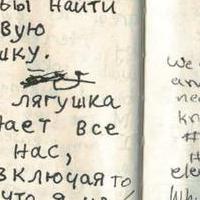 бы найти
вую
шку.
лягушка
нает все
нас,
включая то
что я не
We
an
ne
kn
#
H
ele
Why